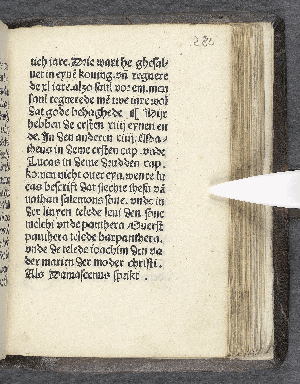 285
tich iare. Drie wart he ghesal-
uet in eynē koning. vñ regnere
de xl iare. also saul vor em. men
saul regnerede mē twe iare wol
dat gode behaghede ¶ Wyr
hebben de ersten xiiij eynen en
de. An den anderen xiiij. Ma-
theus in deme ersten cap. vnde
Lucas in deme drudden cap.
komen nicht ouer eyn. wente lu
cas bescrift dat slechte ihesu vā
nathan salemons sone. vnde in
der linyen telede leui den sone
melchi vnde panthera. Ouerst
panthera telede barpanthera.
vnde de telede ioachim den va
der marien der moder christi.
Als Damascenus sprikt.